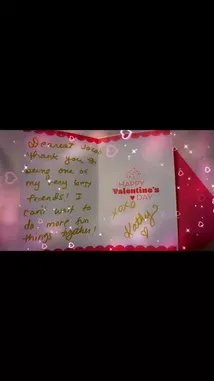 Dearest
thank you for
being one of
my very best
friends! I
can't wait to
do more fun
things together!
HAPPY
Valentine's
DAY
XOXO